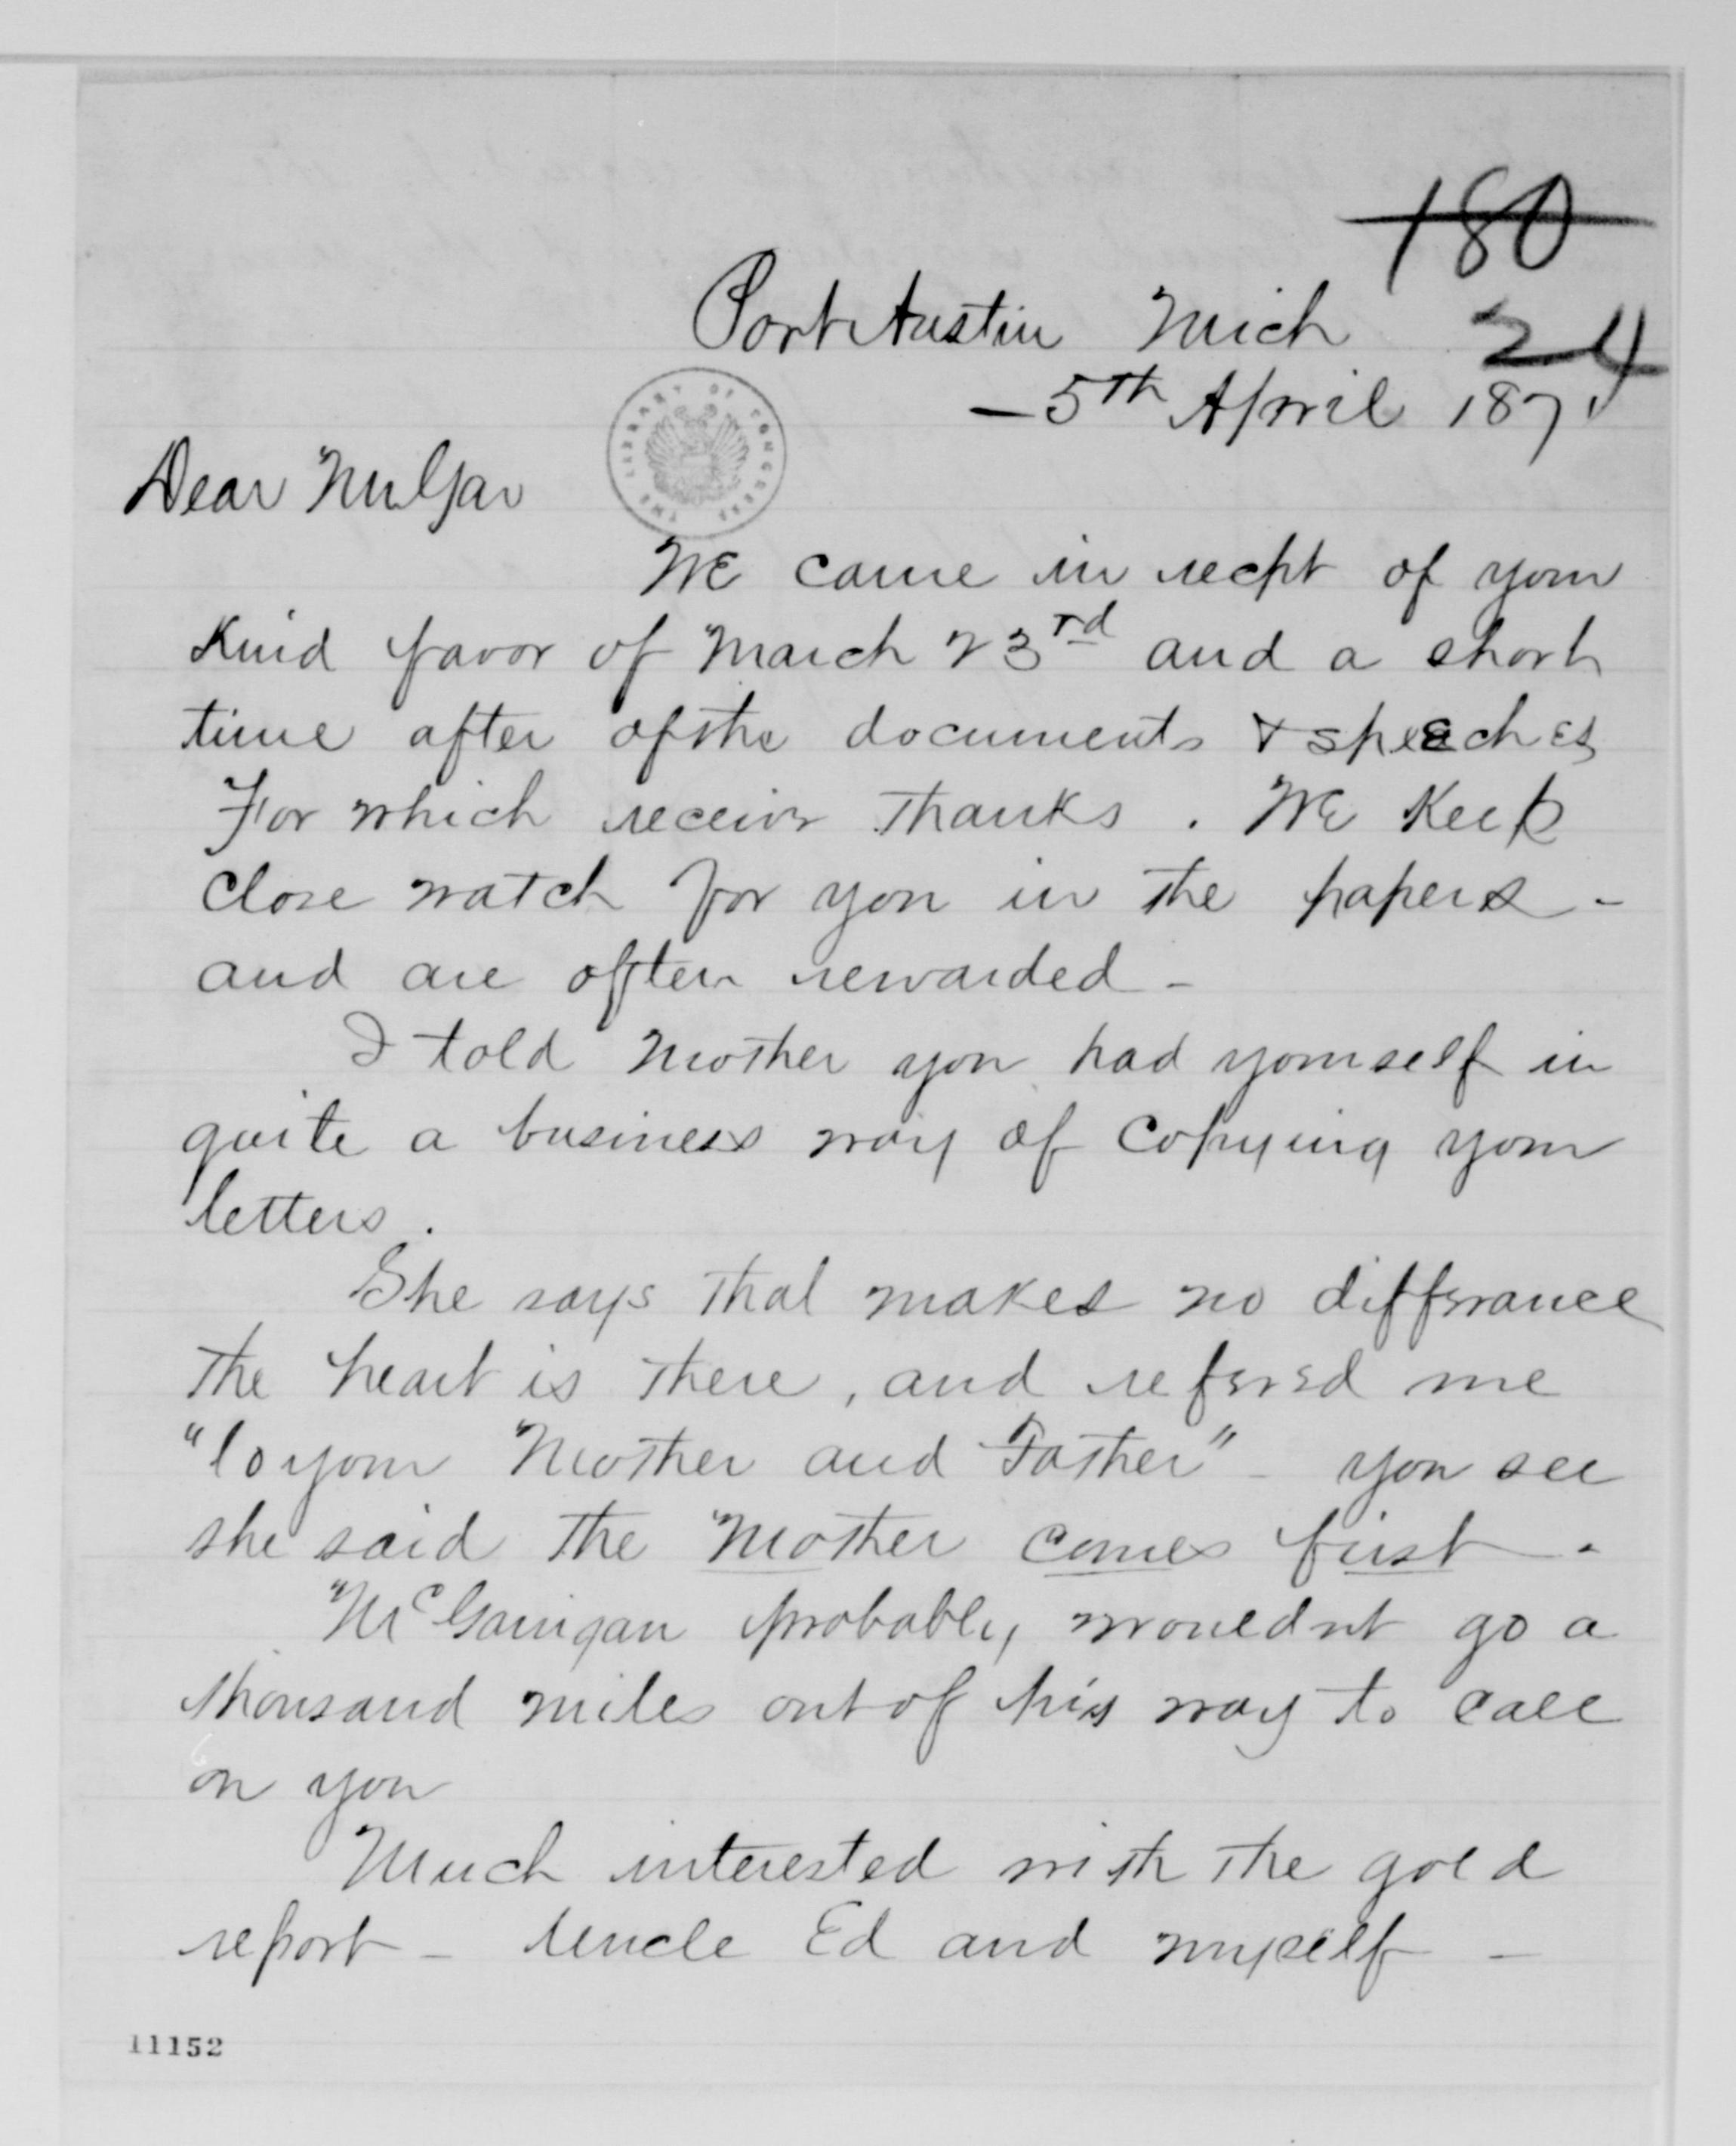 180
Port Austin Mich
24
- 5th April 187
Dear
THE LIBRARY OF CONGRESS
We came in recpt of your
kind favor of March 23rd and a short
time after of the documents & speeches
For which receive thanks . We Keep
close watch for you in the papers -
and are often rewarded -
I told Mother you had yourself in
quite a business way of Copying your
letters .
She says that makes no differance
the heart is there , and refered me
"to your Mother and Father" - you see
she said the Mother comes first .
probably wouldnt go a
thousand miles out of his way to call
on you
Much interested with the gold
report - Uncle Ed and myself -
11152